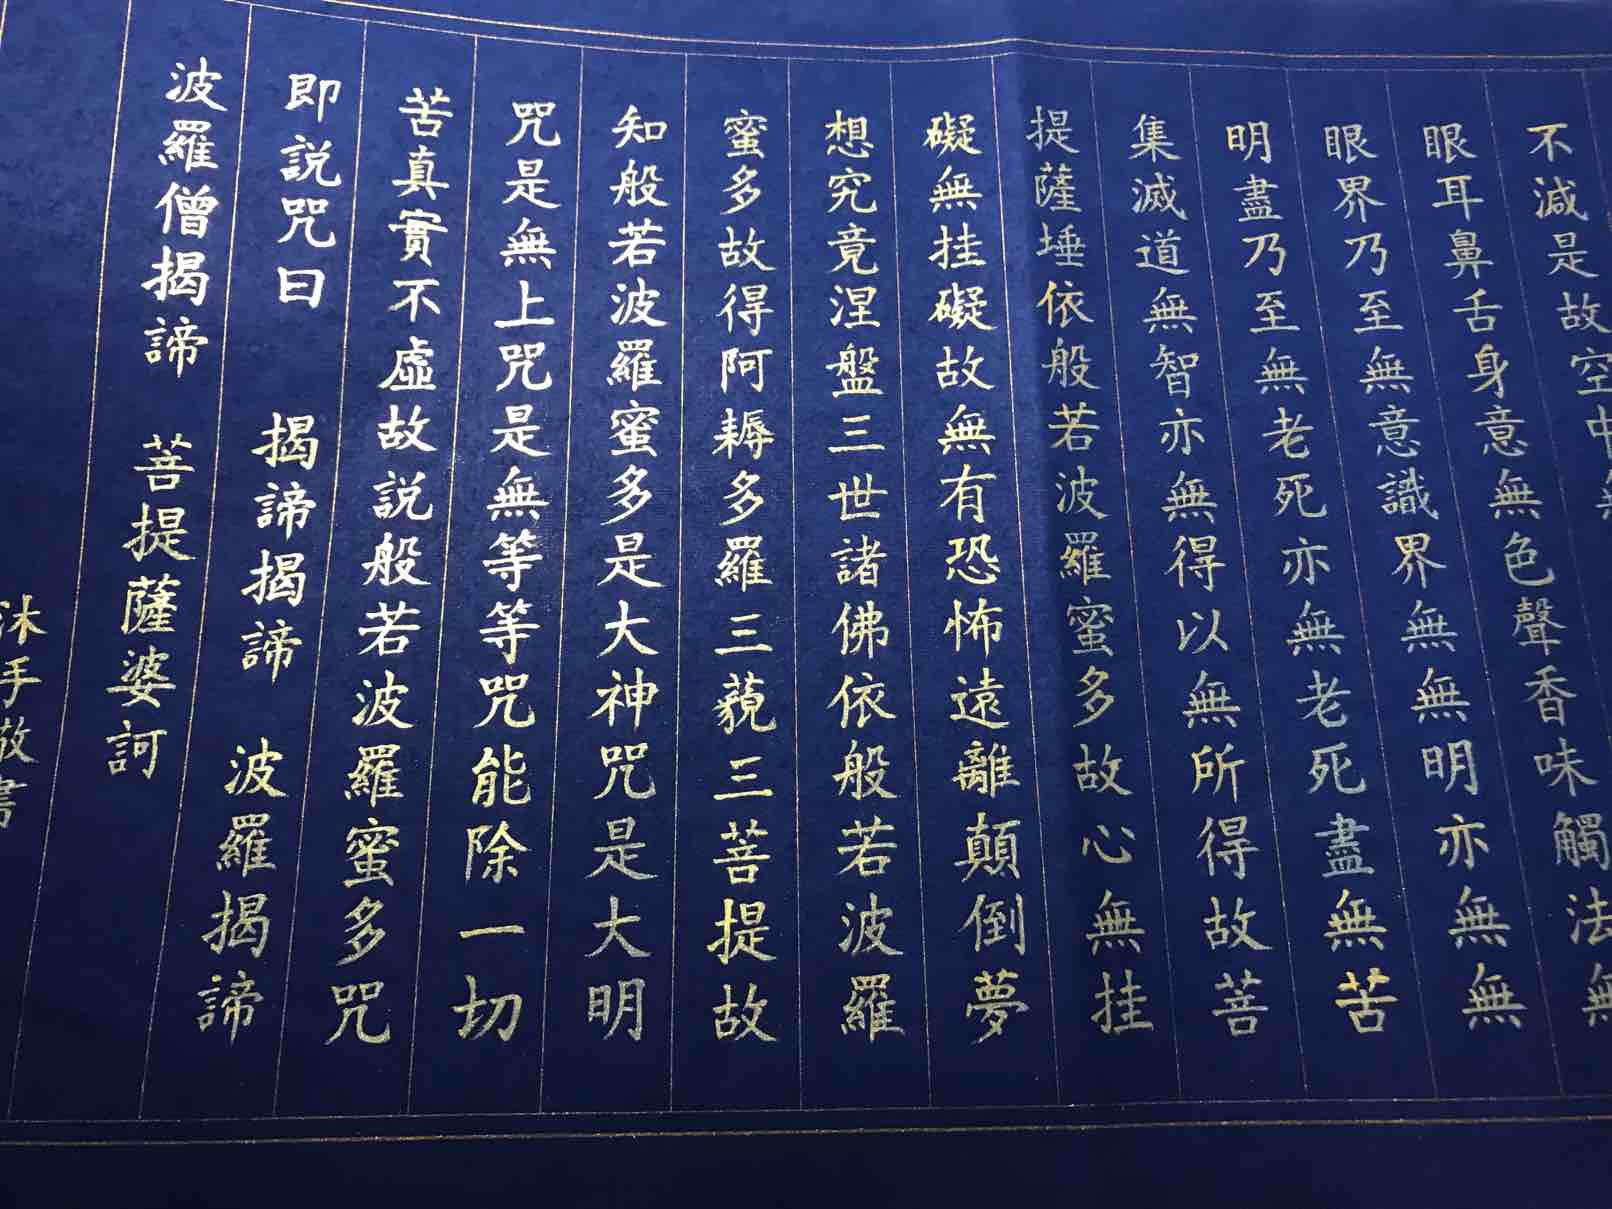 不減是故空中無
眼耳鼻舌身意無色聲香味觸法無
眼界乃至無意識界無無明亦無無
明盡乃至無老死亦無老死盡無苦
集滅道無智亦無得以無所得故菩
提薩埵依般若波羅蜜多故心無挂
礙無挂礙故無有恐怖遠離顛倒夢
想究竟涅盤三世諸佛依般若波羅
蜜多故得阿耨多羅三藐三菩提故
知般若波羅蜜多是大神咒是大明
咒是無上咒是無等等咒能除一切
苦真實不虛故説般若波羅蜜多咒
即説咒曰 揭諦揭諦 波羅揭諦
波羅僧揭諦 菩提薩婆訶
沐手敬書